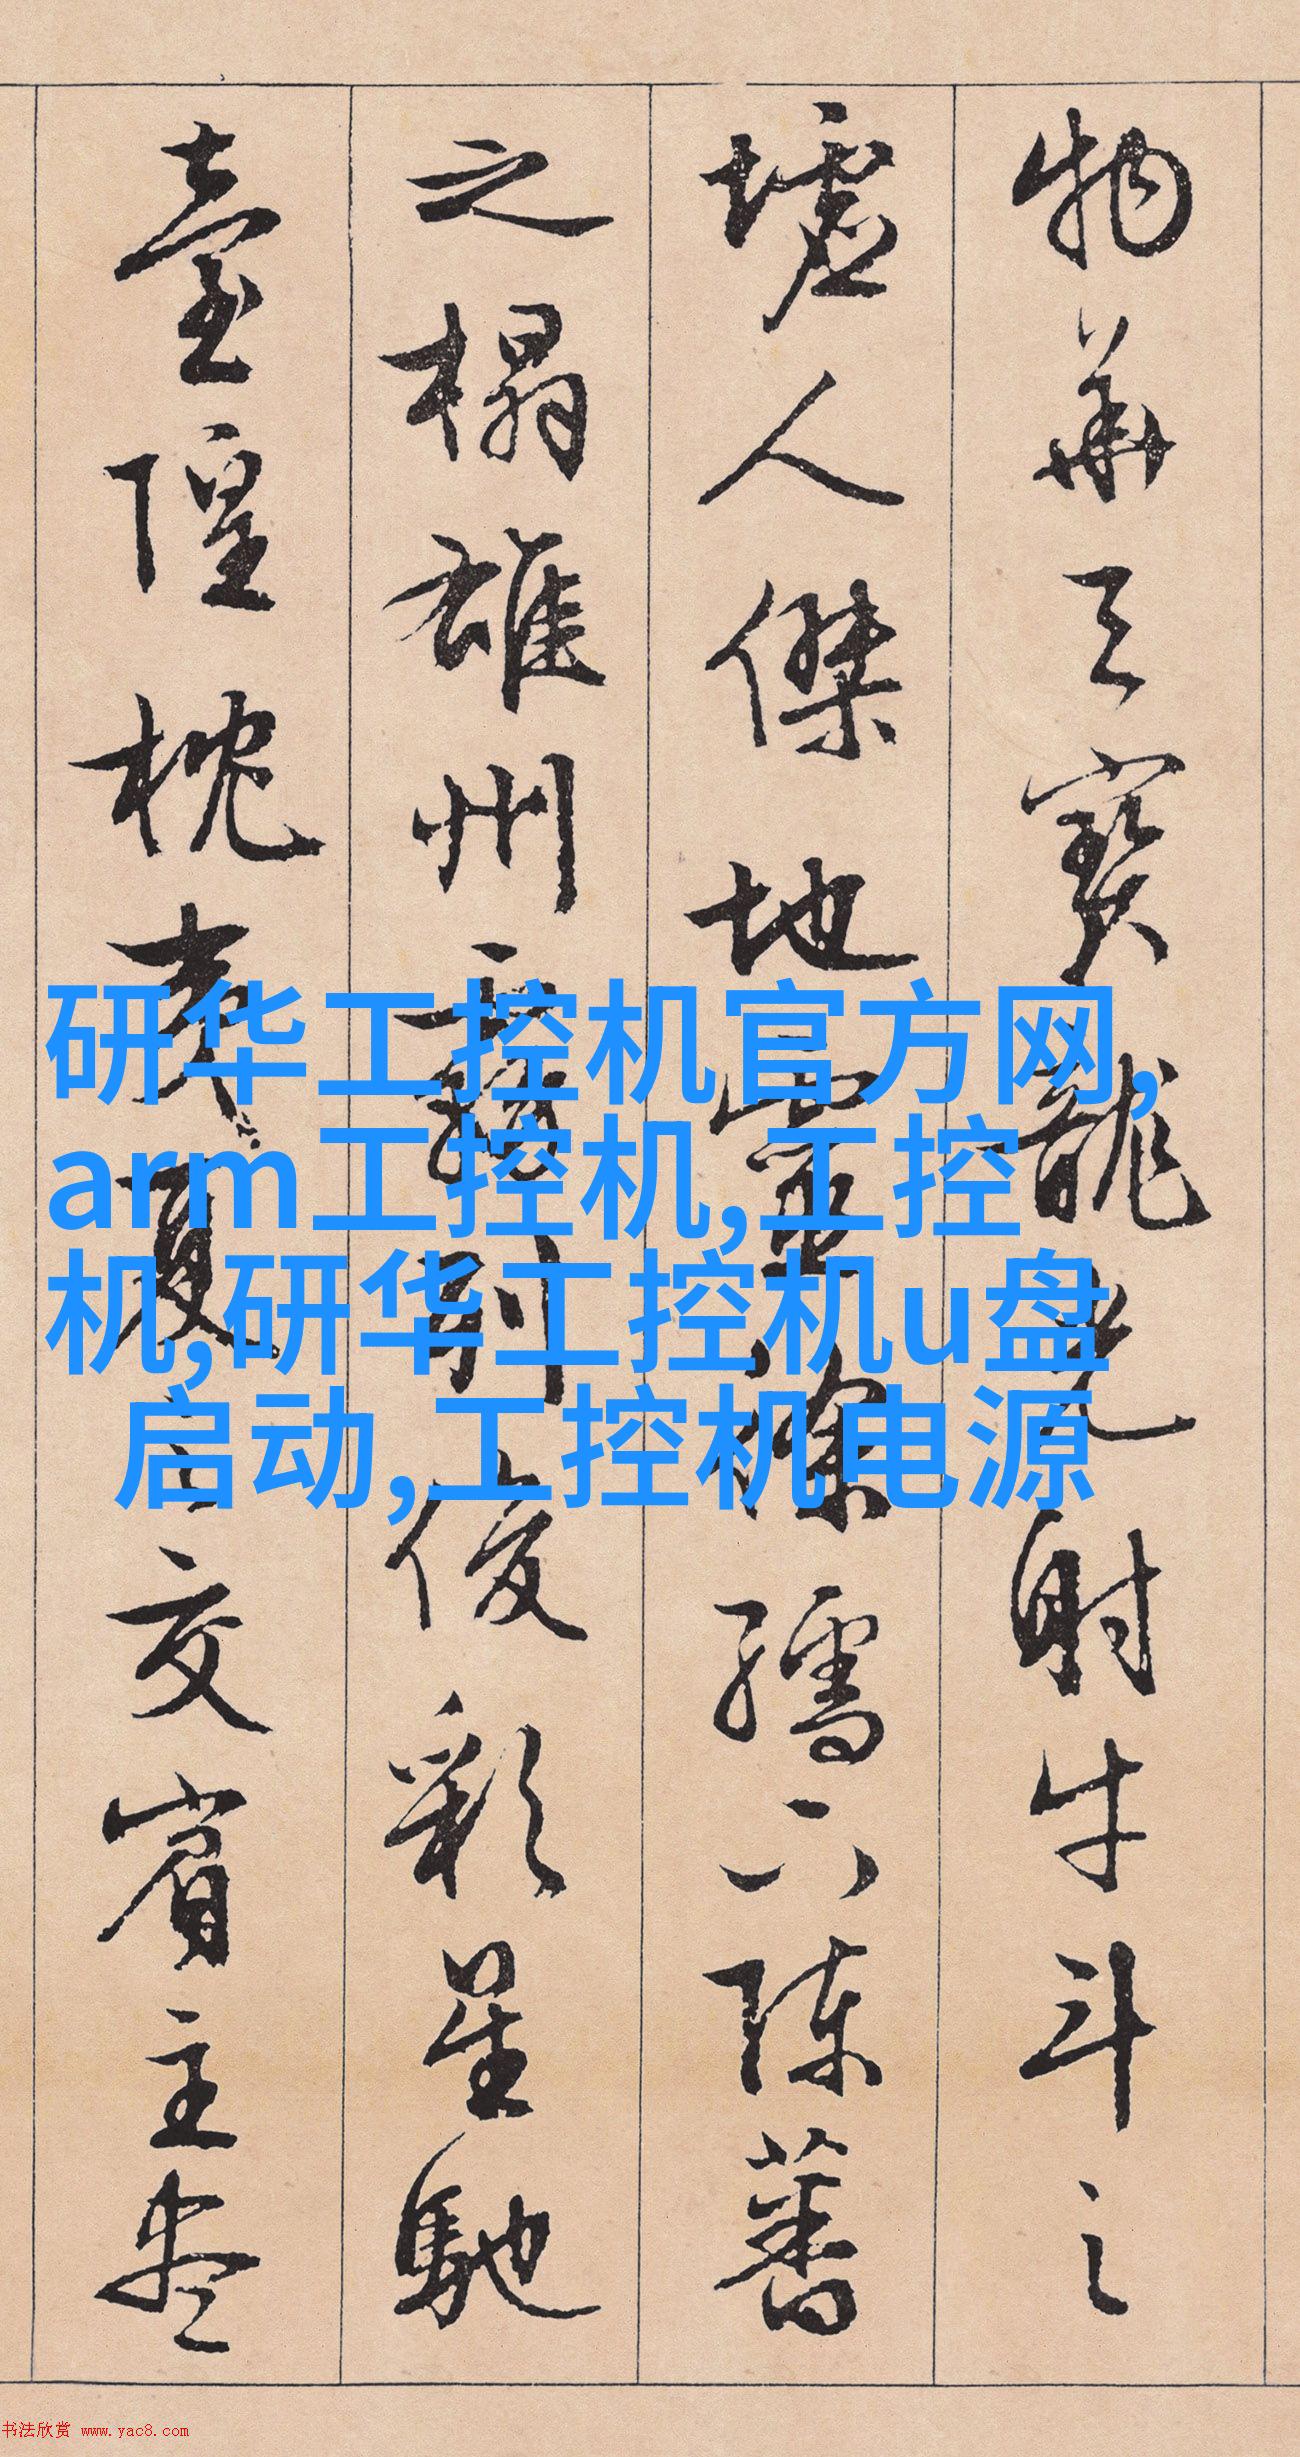 物華天寶龍光射牛斗之
墟人傑地靈徐孺下陳蕃
之榻雄州霧列俊彩星馳
臺隍枕夷夏之交賓主盡
研华工控机官方网,
arm工控机,工控
机,研华工控机u盘
启动,工控机电源
书法欣赏 www.yac8.com